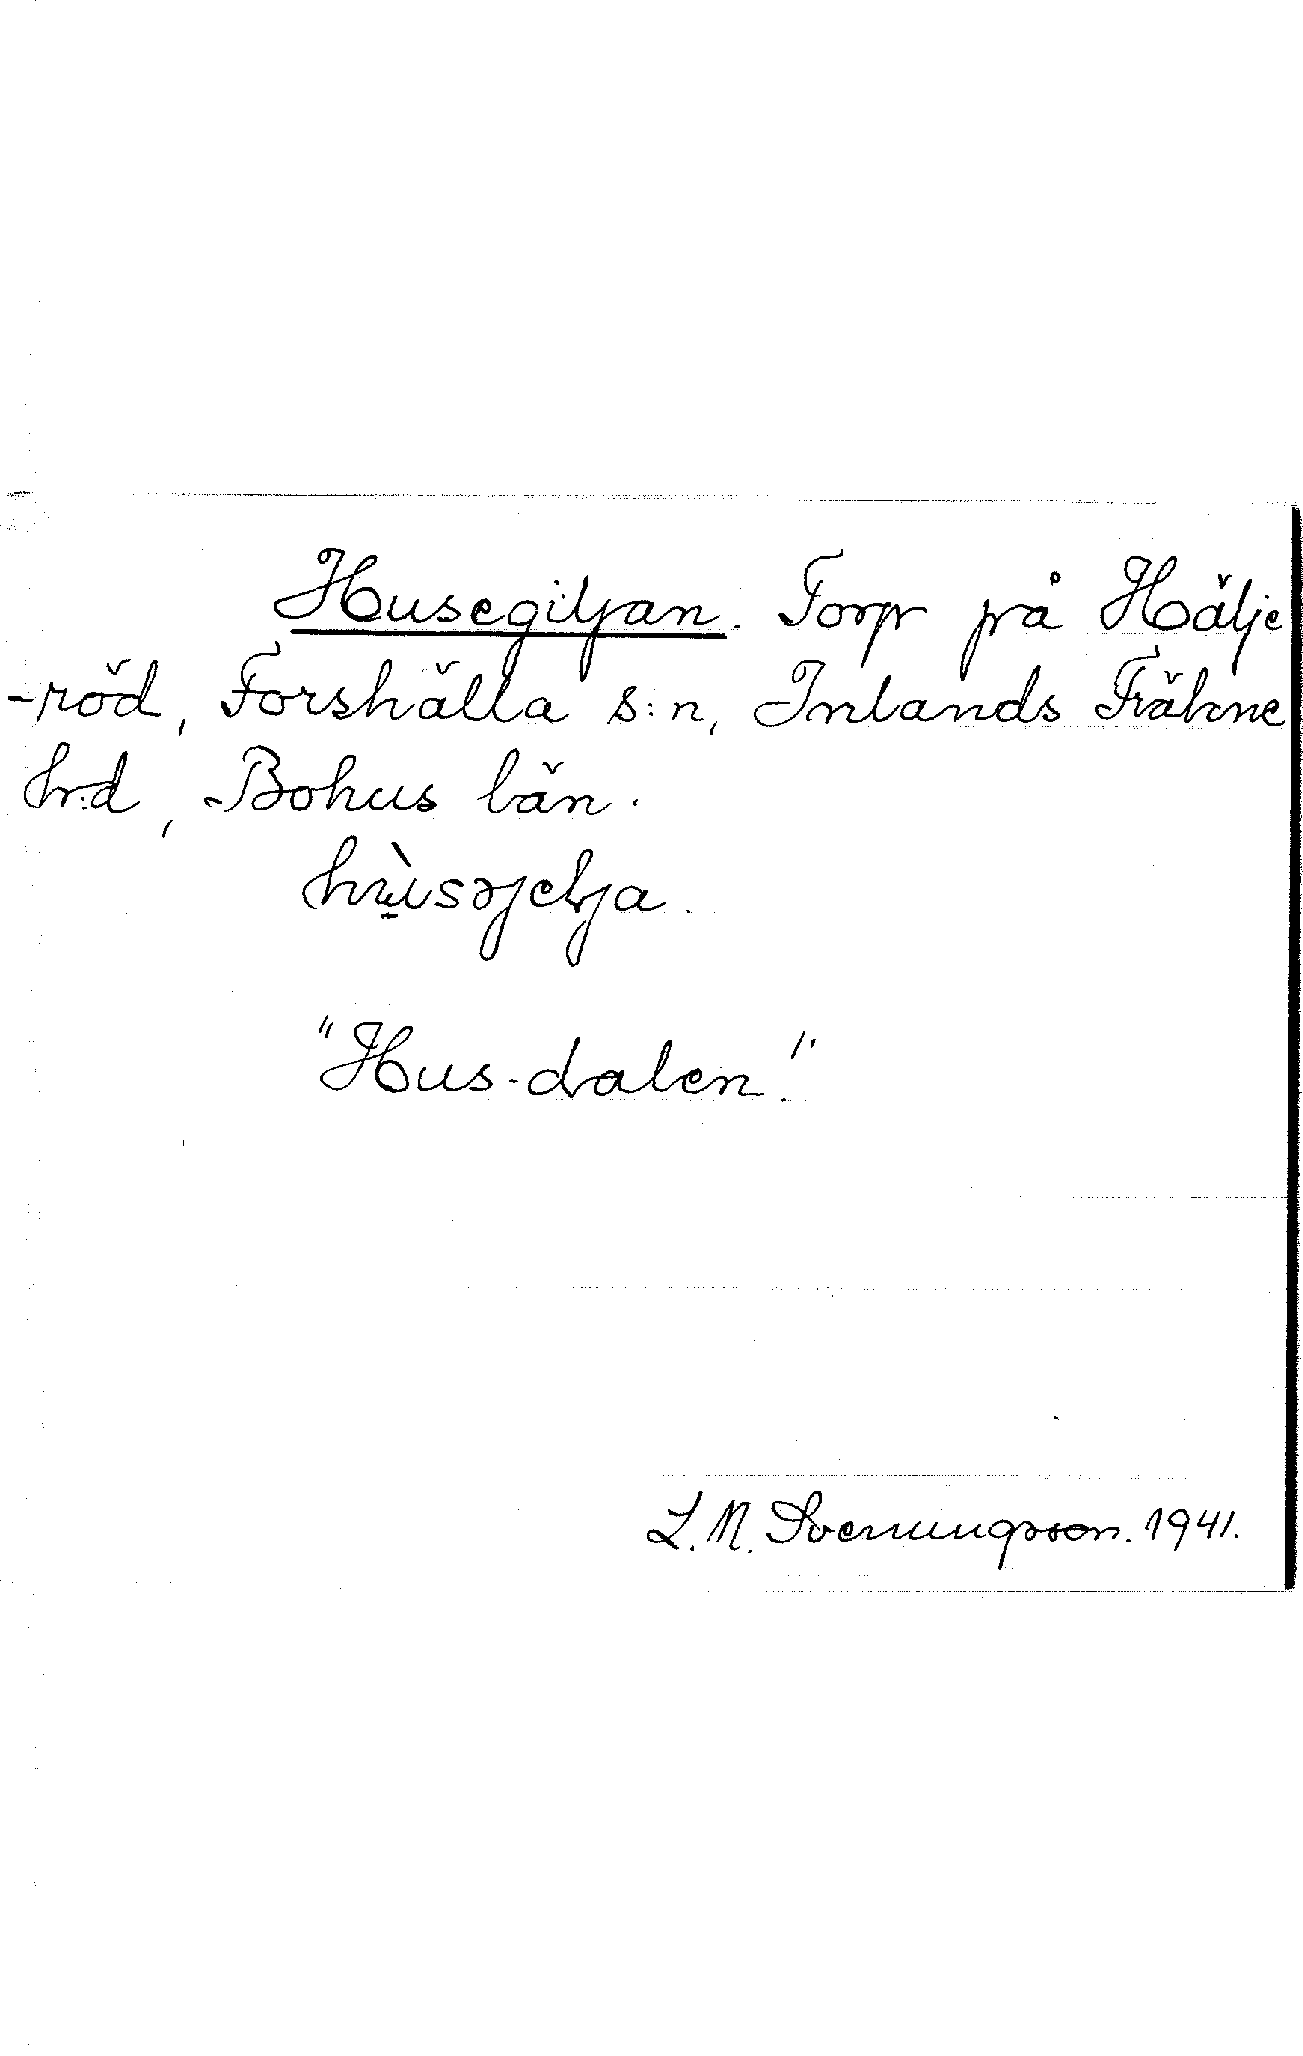 Husegiljan. Torp på Hälje
-röd, Forshälla s:n, Inlands Fräkne
hrd, Bohus län.
hùsəjelja.
"Hus-dalen."
L. M. Svenungsson. 1941.